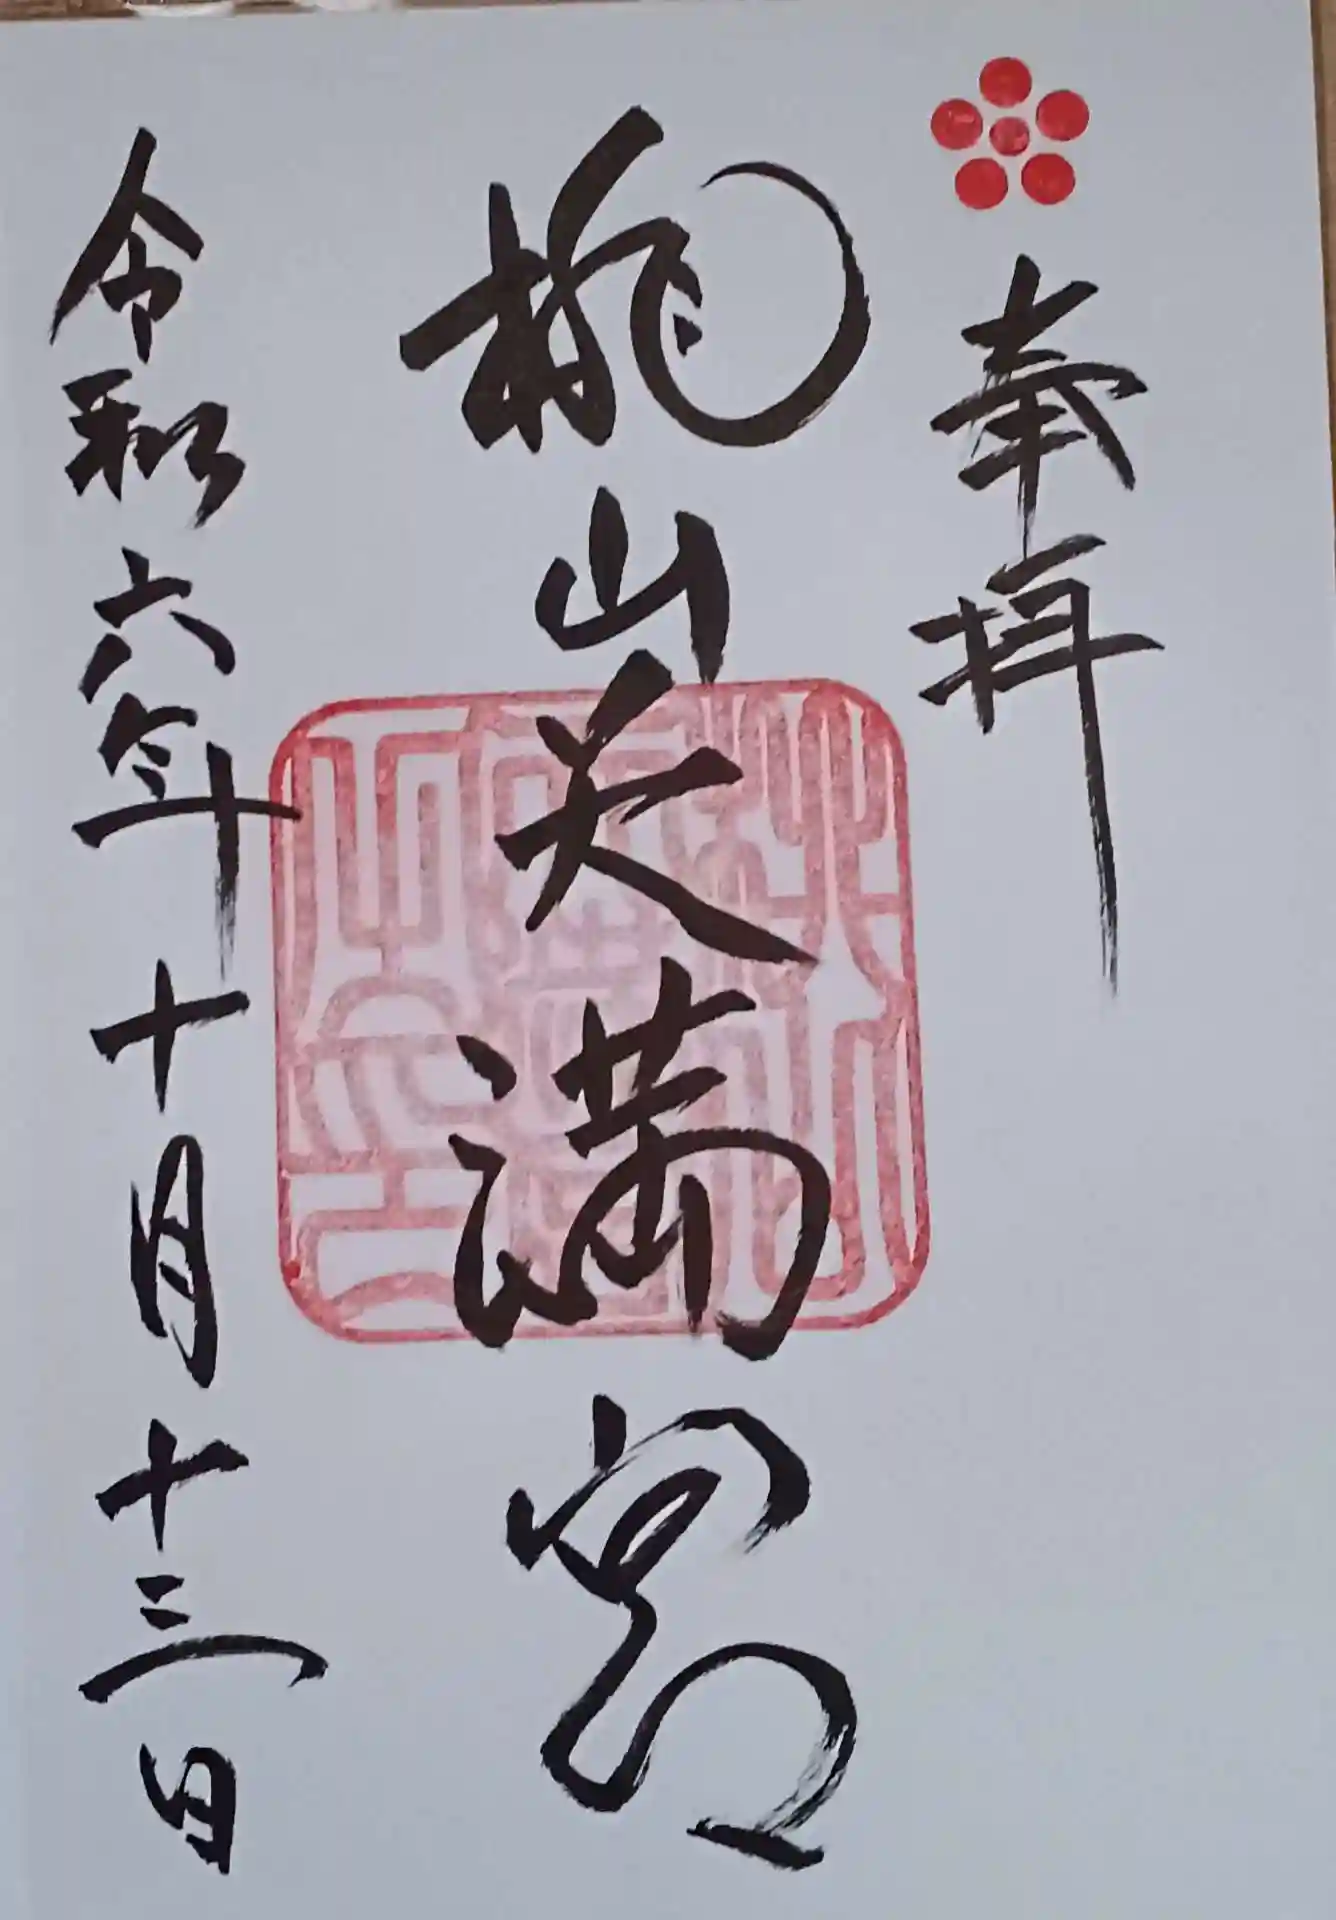 奉拝
桃山天満宮
令和六年十月十三日